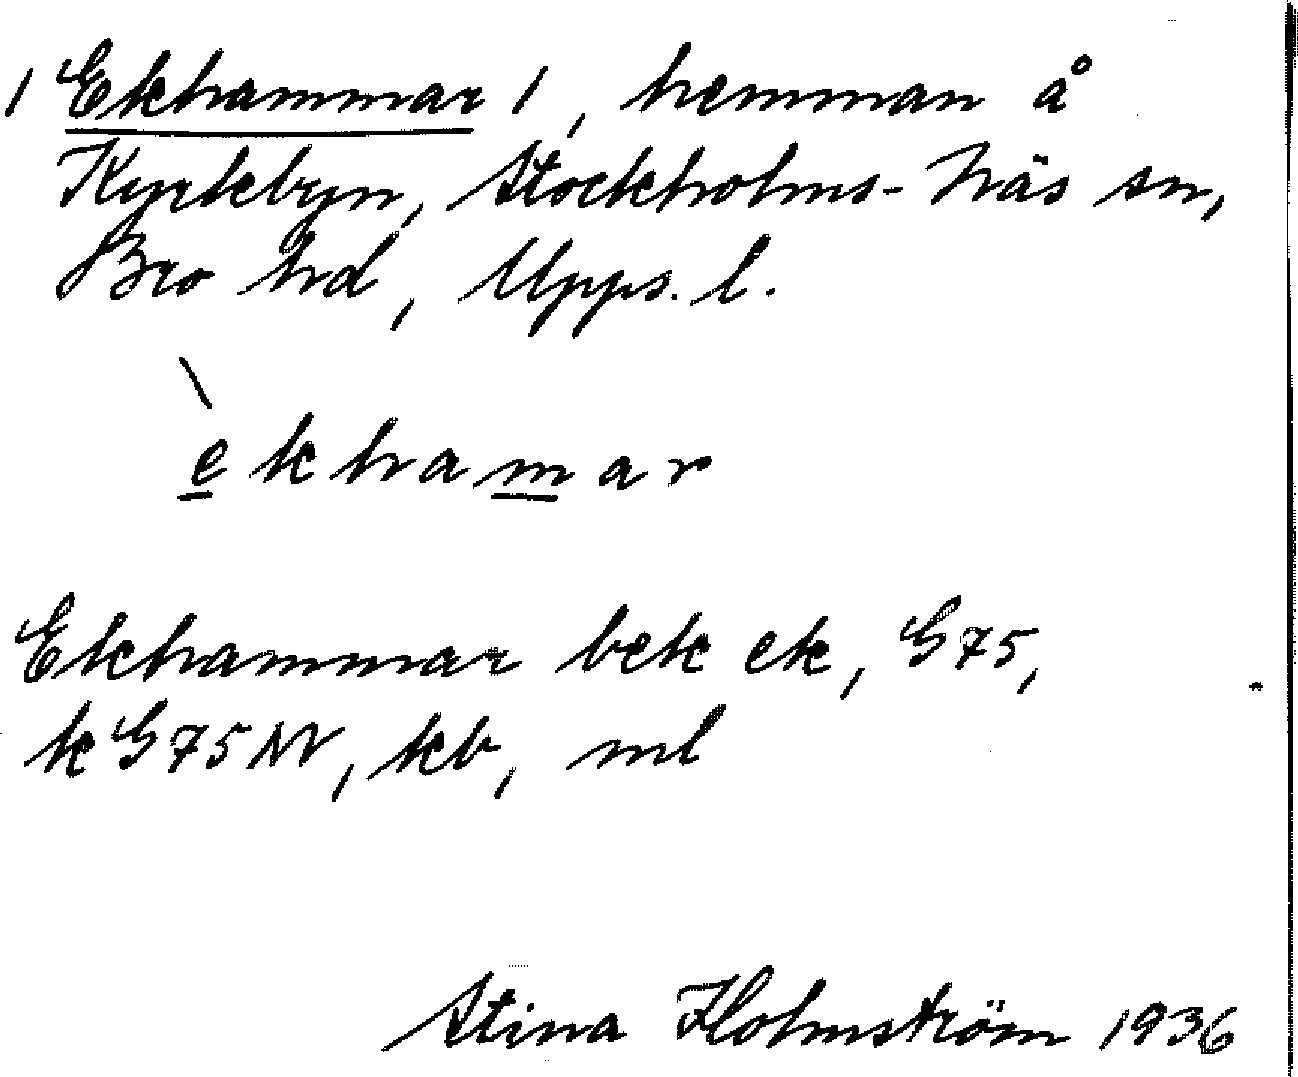 / Ekhammar /, hemman å
Kyrkbyn, Stockholms-Näs sn,
Bro hd, Upps. l.
èkhamar
Ekhammar bek ek, G75,
kG75N, kb, ml
Stina Holmström 1936